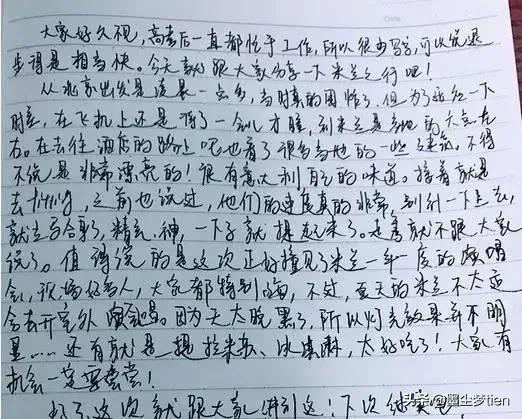 大家好久不见，高考后一直都忙于工作，所以很少写字，可以说退
步得是相当快。今天就跟大家分享一下米兰之行吧！
从北京出发是凌晨一点多，当时真的困炸了，但为了适应一下
时差，在飞机上还是撑了一会儿才睡，到米兰是当地的大早左
右。在去往酒店的路上呢也看了很多当地的一些建筑。不得
不说是非常漂亮的！很有意大利自己的味道。接着就是
去fitting，之前也说过，他们的速度真的非常，别什一下上去，
就立马合身了，精气神，一下子就提起来了。这里就不跟大家
说了。值得说的是这次正好撞见了米兰一年一度的演唱
会，现场好多人，大家都特别嗨，不过，夏天的米兰不太适
合去开室外演唱会。因为天太晚黑了，所以灯光效果并不明
显……还有就是提拉米苏、冰淇淋，太好吃了！大家有
机会一定要尝尝！
好了，这次就跟大家讲到这！下次继续吧！
头条@墨尘梦tien